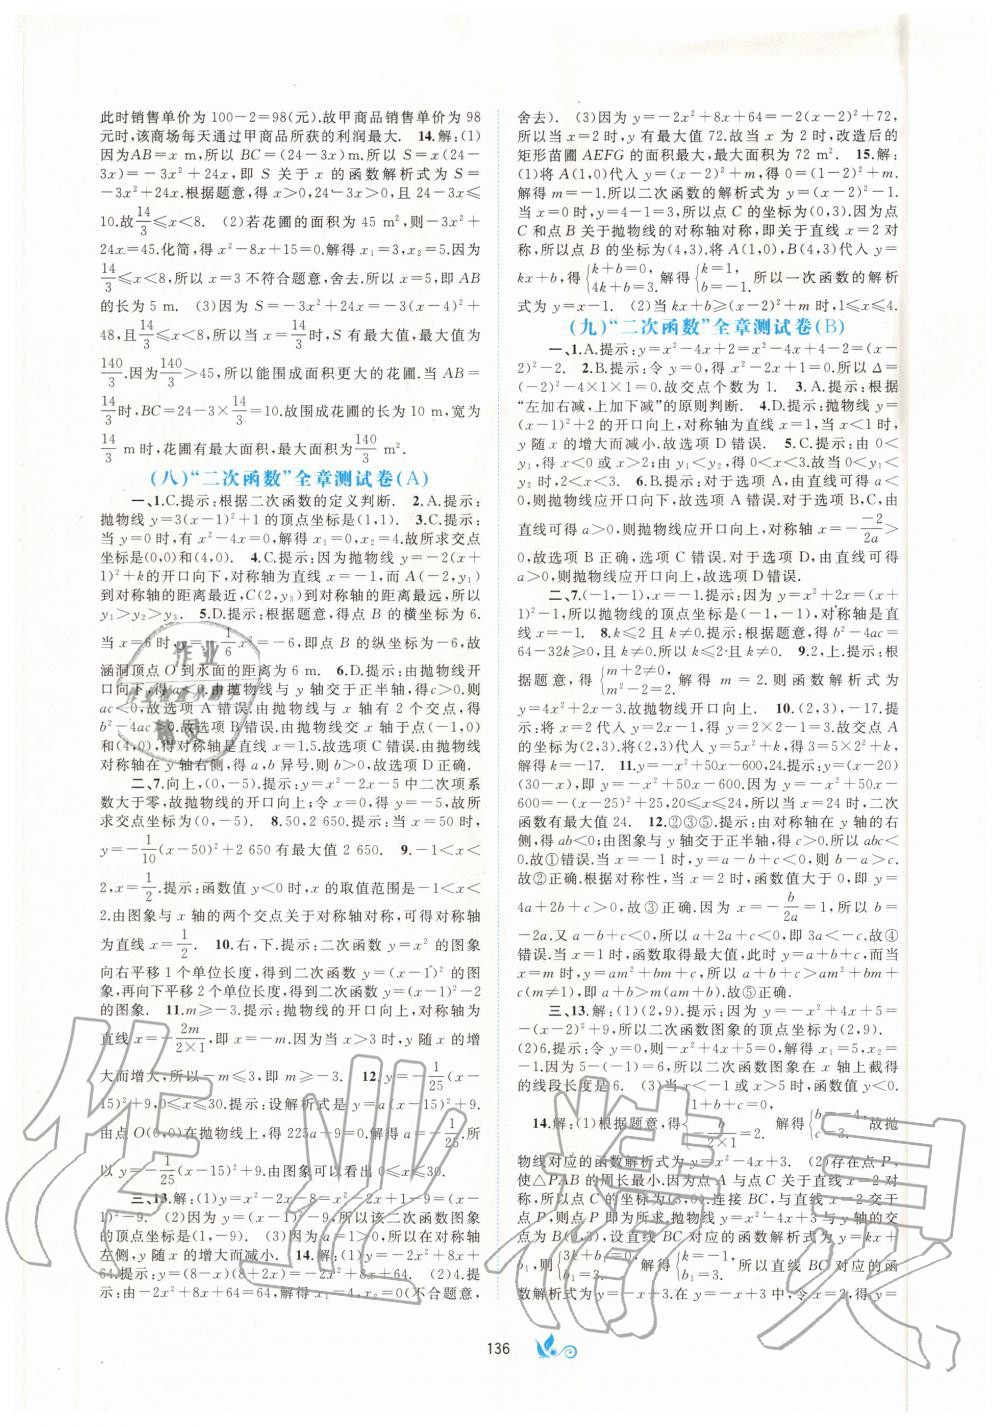 此时销售单价为 100-2=98(元).故甲商品销售单价为 98
元时,该商场每天通过甲商品所获的利润最大. 14.解:(1)
因为AB=x m,所以 BC=(24-3x)m.所以 S=x(24-
3x)=-3x²+24x,即 S 关于 x 的函数解析式为 S=
-3x²+24x.根据题意,得 x>0,24-3x>0,且 24-3x≤
10.故14/3≤x<8. (2)若花圃的面积为 45 m²,则-3x²+
24x=45.化简,得 x²-8x+15=0.解得 x₁=3,x₂=5.因为
14/3≤x<8,所以 x=3 不符合题意,舍去.所以 x=5,即 AB
的长为 5 m. (3)因为 S=-3x²+24x=-3(x-4)²+
48,且14/3≤x<8,所以当 x=14/3时,S 有最大值,最大值为
140/3.因为140/3>45,所以能围成面积更大的花圃.当 AB=
14/3时,BC=24-3×14/3=10.故围成花圃的长为 10 m,宽为
14/3 m时,花圃有最大面积,最大面积为140/3 m².
(八)“二次函数”全章测试卷(A)
一、1.C.提示:根据二次函数的定义判断. 2.A.提示:
抛物线 y=3(x-1)²+1 的顶点坐标是(1,1). 3.C.提示:
当 y=0 时,有 x²-4x=0.解得 x₁=0,x₂=4.故所求交点
坐标是(0,0)和(4,0). 4.C.提示:因为抛物线 y=-2(x+
1)²+k的开口向下,对称轴为直线 x=-1,而 A(-2,y₁)
到对称轴的距离最近,C(2,y₃)到对称轴的距离最远,所以
y₁>y₂>y₃. 5.D.提示:根据题意,得点 B 的横坐标为 6.
当 x=6 时,y=-1/6x²=-6,即点 B 的纵坐标为-6,故
涵洞顶点 O 到水面的距离为 6 m. 6.D.提示:由抛物线开
口向下,得 a<0.由抛物线与 y 轴交于正半轴,得 c>0.则
ac<0.故选项 A 错误.由抛物线与 x 轴有 2 个交点,得
b²-4ac>0.故选项 B 错误.由抛物线交 x 轴于点(-1,0)
和(4,0),得对称轴是直线 x=1.5.故选项 C 错误.由抛物线
对称轴在 y 轴右侧,得 a、b 异号.则 b>0.故选项 D 正确.
二、7.向上,(0,-5).提示:y=x²-2x-5 中二次项系
数大于零,故抛物线的开口向上;令 x=0,得 y=-5,故所
求交点坐标为(0,-5). 8.50,2 650.提示:当 x=50 时,
y=-1/10(x-50)²+2 650 有最大值 2 650. 9.-1<x<
2,x=1/2.提示:函数值 y<0 时,x 的取值范围是-1<x<
2.由图象与 x 轴的两个交点关于对称轴对称,可得对称轴
为直线 x=1/2. 10.右,下.提示:二次函数 y=x² 的图象
向右平移 1 个单位长度,得到二次函数 y=(x-1)² 的图
象,再向下平移 2 个单位长度,得到二次函数 y=(x-1)²-2
的图象. 11.m≥-3.提示:抛物线的开口向上,对称轴为
直线 x=-2m/2×1,即 x=-m.因为当 x>3 时,y 随 x 的增
大而增大,所以-m≤3,即 m≥-3. 12.y=-1/25(x-
15)²+9,0≤x≤30.提示:设解析式是 y=a(x-15)²+9.
由点 O(0,0)在抛物线上,得 225a+9=0.解得 a=-1/25.所
以 y=-1/25(x-15)²+9.由图象可以看出 0≤x≤30.
三、13.解:(1)y=x²-2x-8=x²-2x+1-9=(x-
1)²-9. (2)因为 y=(x-1)²-9,所以该二次函数图象
的顶点坐标是(1,-9). (3)因为 a=1>0,所以在对称轴
左侧,y 随 x 的增大而减小. 14.解:(1)y=-2x²+8x+
64.提示:y=(8-x)(8+2x)=-2x²+8x+64. (2)4.提
示:由-2x²+8x+64=64,解得 x₁=4,x₂=0(不合题意,
舍去). (3)因为 y=-2x²+8x+64=-2(x-2)²+72,
所以当 x=2 时,y 有最大值 72.故当 x 为 2 时,改造后的
矩形苗圃 AEFG 的面积最大,最大面积为 72 m². 15.解:
(1)将 A(1,0)代入 y=(x-2)²+m,得 0=(1-2)²+m.
解得 m=-1.所以二次函数的解析式为 y=(x-2)²-1.
当 x=0 时,y=4-1=3,所以点 C 的坐标为(0,3).因为点
C 和点 B 关于抛物线的对称轴对称,即关于直线 x=2 对
称,所以点 B 的坐标为(4,3).将 A(1,0),B(4,3)代入 y=
kx+b,得{k+b=0, 4k+b=3. 解得{k=1, b=-1. 所以一次函数的解析
式为 y=x-1. (2)当 kx+b≥(x-2)²+m 时,1≤x≤4.
(九)“二次函数”全章测试卷(B)
一、1.A.提示:y=x²-4x+2=x²-4x+4-2=(x-
2)²-2. 2.B.提示:令 y=0,得 x²-2x+1=0.所以 Δ=
(-2)²-4×1×1=0.故交点个数为 1. 3.A.提示:根据
“左加右减,上加下减”的原则判断. 4.D.提示:抛物线 y=
(x-1)²+2 的开口向上,对称轴为直线 x=1,当 x<1 时,
y 随 x 的增大而减小.故选项 D 错误. 5.C.提示:由 0<
y₁<y₂,得 0<a<1.故选 C. 6.B.提示:对于选项 A,由直线可得
a<0,则抛物线应开口向下,故选项 A 错误.对于选项 B,C,由
直线可得 a>0,则抛物线应开口向上,对称轴 x=--2/2a>
0,故选项 B 正确,选项 C 错误.对于选项 D,由直线可得
a>0,则抛物线应开口向上,故选项 D 错误.
二、7.(-1,-1),x=-1.提示:因为 y=x²+2x=(x+
1)²-1,所以抛物线的顶点坐标是(-1,-1),对称轴是直
线 x=-1. 8.k≤2 且 k≠0.提示:根据题意,得 b²-4ac=
64-32k≥0,且 k≠0.所以 k≤2 且 k≠0. 9.2,上.提示:根
据题意,得{m+2≠0, m²-2=2. 解得 m=2.则函数解析式为
y=4x²+2x-3.故抛物线开口向上. 10.(2,3),-17.提
示:将 x=2 代入 y=2x-1,得 y=2×2-1=3.故交点 A
的坐标为(2,3).将(2,3)代入 y=5x²+k,得 3=5×2²+k,
解得 k=-17. 11.y=-x²+50x-600,24.提示:y=(x-20)
(30-x),即 y=-x²+50x-600.因为 y=-x²+50x-
600=-(x-25)²+25,20≤x≤24,所以当 x=24 时,二次
函数有最大值 24. 12.②③⑤.提示:由对称轴在 y 轴的右
侧,得 ab<0;由图象与 y 轴交于正半轴,得 c>0.所以 abc<
0.故①错误.当 x=-1 时,y=a-b+c<0,则 b-a>c.
故②正确.根据对称性,当 x=2 时,y>0,即 y=
4a+2b+c>0,故③正确.因为 x=-b/2a=1,所以 b=
-2a.又 a-b+c<0,所以 a+2a+c<0,即 3a+c<0.故④
错误.当 x=1 时,函数取得最大值,此时 y=a+b+c;而当
x=m 时,y=am²+bm+c,所以 a+b+c>am²+bm+
c(m≠1),即 a+b>m(am+b).故⑤正确.
三、13.解:(1)(2,9).提示:因为 y=-x²+4x+5=
-(x-2)²+9,所以二次函数图象的顶点坐标为(2,9).
(2)6.提示:令 y=0,得-x²+4x+5=0,解得 x₁=5,x₂=
-1.因为 5-(-1)=6,所以二次函数图象在 x 轴上截得
的线段长度是 6. (3)当 x<-1 或 x>5 时,函数值 y<0.
14.解:(1)根据题意,得{1+b+c=0, -b/2×1=2. 解得{b=-4, c=3. 故抛
物线对应的函数解析式为 y=x²-4x+3. (2)存在点 P,
使△PAB 的周长最小.因为点 A 与点 C 关于直线 x=2 对
称,所以点 C 的坐标为(3,0).连接 BC,与直线 x=2 交于
点 P,则点 P 即为所求.抛物线 y=x²-4x+3 与 y轴的交
点为 B(0,3),设直线 BC 对应的函数解析式为 y=kx+
b₁,则{3k+b₁=0, b₁=3. 解得{k=-1, b₁=3. 所以直线 BC 对应的函
数解析式为 y=-x+3.在 y=-x+3 中,令 x=2,得 y=
136